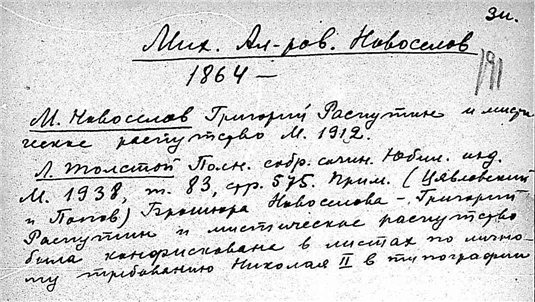 Зн.
Мих. Ал-ров. Новоселов
1864 –
М. Новоселов Григорий Распутин и мисти
ческое распутство М. 1912.
Л. Толстой Полн. собр. сочин. Юбил. изд.
М. 1938, т. 83, стр. 575. Прим. (Цявловский
и Попов) Брошюра Новоселова – Григорий
Распутин и мистическое распутство
была конфискована в листах по лично-
му требованию Николая II в типографии